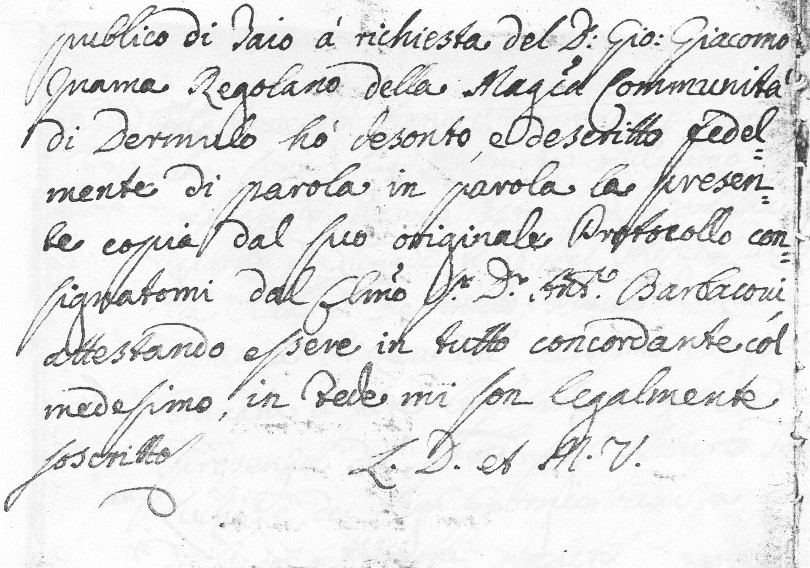 publico di Taio á richiesta del D: Gio: Giacomo
Inama Regolano della Magca Communita'
di Dermulo hó desonto, e descritto fedel=
mente di parola in parola la presen=
te copia dal suo originale Protocollo con=
signatomi dal Illmo Sr. Dr. Anto. Barbacovi,
attestando essere in tutto concordante col
medesimo, in Fede mi son legalmente
soscritto L. D. et M. V.